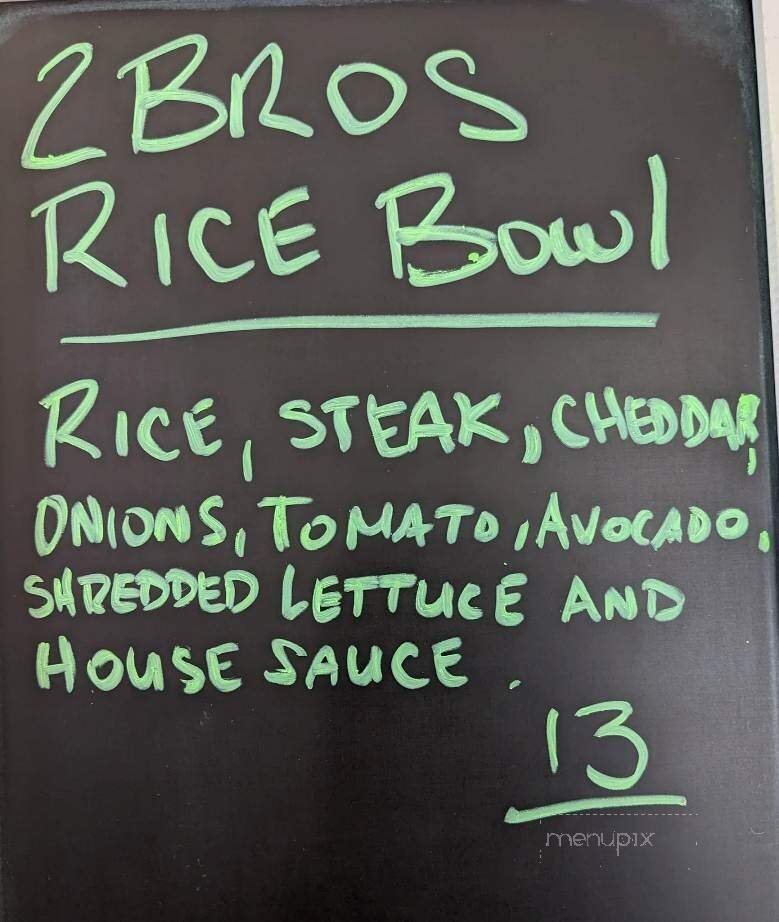 2 BROS
RICE BOWl
RICE, STEAK, CHEDDAR,
ONIONS, TOMATO, AVOCADO,
SHREDDED LETTUCE AND
HOUSE SAUCE.
13
menupix